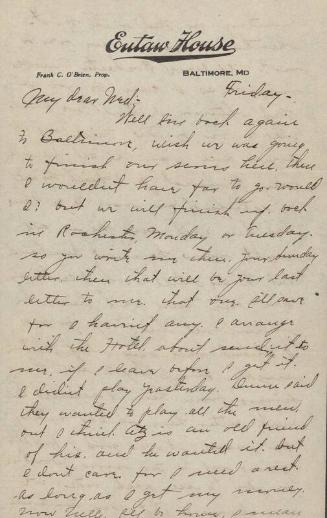 Eutaw House
Frank C. O'Brien, Prop.
BALTIMORE, MD
Friday.
My dear Ned:
Well I'm back again
to Baltimore, wish we was going
to finish our series here, then
I wouldn't have far to go would
I? but we will finish up back
in Rochester Monday or Tuesday.
so you write me there your Sunday
letter then that will be your last
letter to me. that one I'll save
for I haven't any. I arrange
with the Hotel about send it to
me, if I leave before I get it.
I didn't play yesterday. Dunn said
they wanted to play all the men,
but I think is an old friend
of his. and he wanted it. but
I don't care for I need a rest.
as long as I get my money.
now to know, I mean